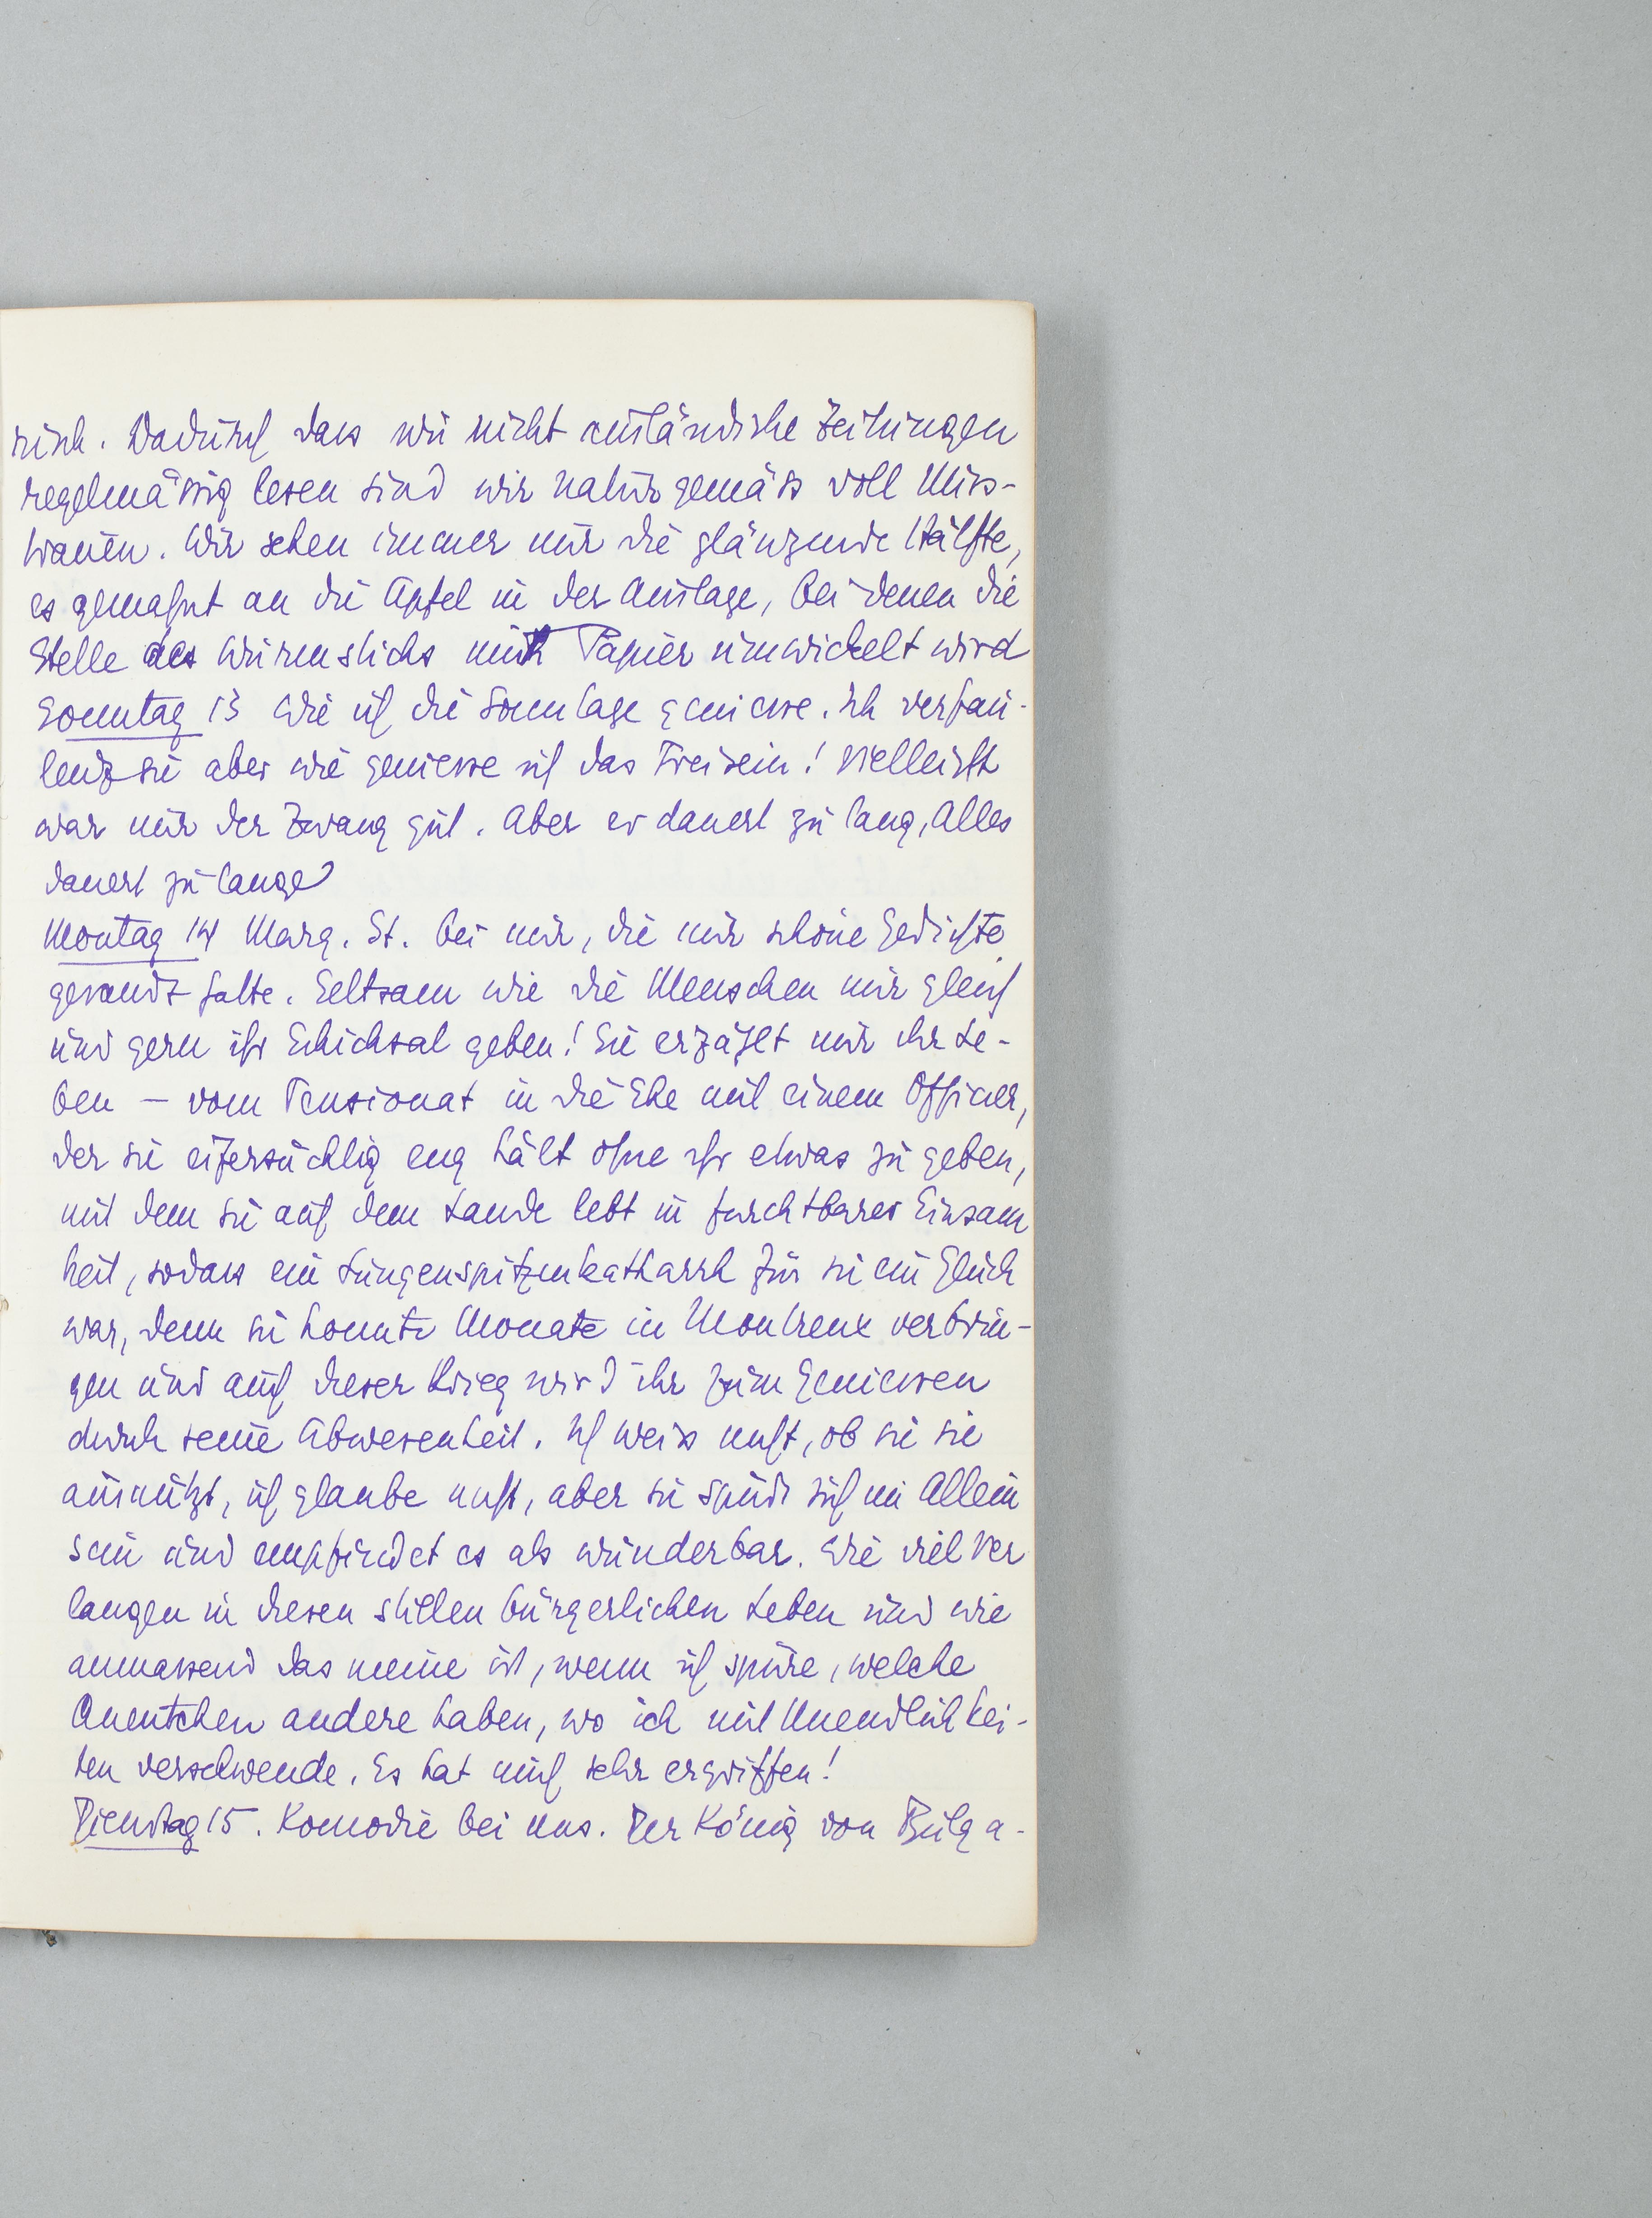 risch. Dadurch dass wir nicht ausländische Zeitungen
regelmässig lesen sind wir naturgemäss voll Miss-
trauen. Wir sehen immer nur die glänzende Hälfte,
es gemahnt an die Äpfel in der Auslage, bei denen die
Stelle des Wurmstichs mit Papier umwickelt wird
Sonntag 13 Wie ich die Sonntage geniesse. Ich verfau-
lenz sie aber wie geniesse ich das Freisein! Vielleicht
war mir der Zwang gut. Aber er dauert zu lang, Alles
dauert zu lange
Montag 14 Marg. St. bei mir, die mir schöne Gedichte
gesandt hatte. Seltsam wie die Menschen mir gleich
und gern ihr Schicksal geben! Sie erzählt mir ihr Le-
ben – vom Pensionat in die Ehe mit einem Officier,
der sie eifersüchtig eng hält ohne ihr etwas zu geben,
mit dem sie auf dem Lande lebt in furchtbarer Einsam
keit, sodass ein Lungenspitzenkatharrh für sie ein Glück
war, denn sie konnte Monate in Montreux verbrin-
gen und auch dieser Krieg wird ihr zum Geniessen
durch seine Abwesenheit. Ich weiss nicht, ob sie sie
ausnützt, ich glaube nicht, aber sie spürt sich im Allein
sein und empfindet es als wunderbar. Wie viel Ver
langen in diesen stillen bürgerlichen Leben und wie
anmassend das meine ist, wenn ich spüre, welche
Quentchen andere haben, wo ich mit Unendlichkei-
ten verschwende. Es hat mich sehr ergriffen!
Dienstag 15. Komödie bei uns. Der König von Bulga-